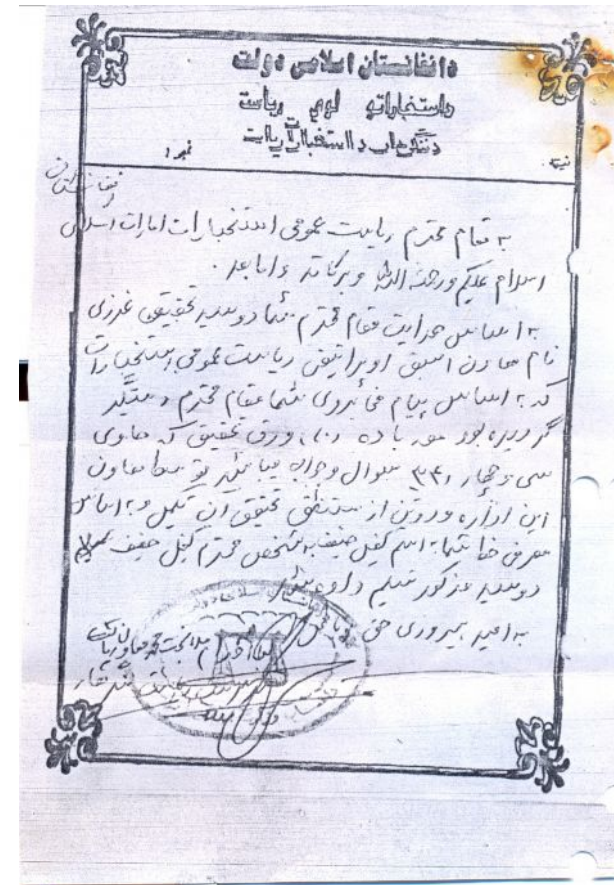 دافغانستان اسلامی دولت
داستخباراتو لوی ریاست
د استخباراتو ریاست
نمبر /
نیټه
افغانستان
به مقام محترم ریاست عمومی استخبارات امارات اسلامی
اسلام علیکم ورحمته الله وبرکاته واما بعد.
به اساس هدایت مقام محترم شما دوسیه تحقیقی غرزی
نام معاون اسبق اوپراتیفی ریاست عمومی استخبارات
که به اساس پیام مخابروی شما مقام محترم دستگیر
گردیده بود مورد با ده (۱۰) ورق تحقیق که حاوی
سی و چهار (۳۴) سوال وجواب میباشد توسط معاون
این اداره ودوتن از مستنطق تحقیق آن تکمیل و به اساس
معرفی خط شما به اسم کفیل حنیف به شخص محترم کفیل حنیف
دوسیه مذکور تسلیم داده شد
به امید پیروزی حق